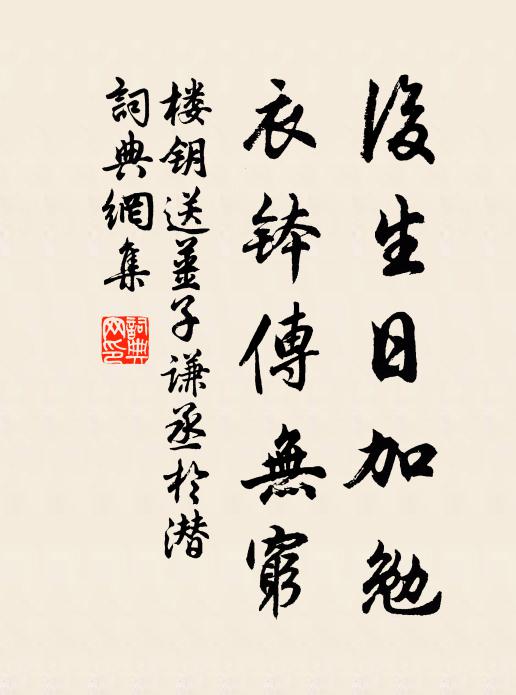 後生日加勉
衣鉢傳無窮
楼钥送姜子谦丞於潜
詞典網集
詞典網印